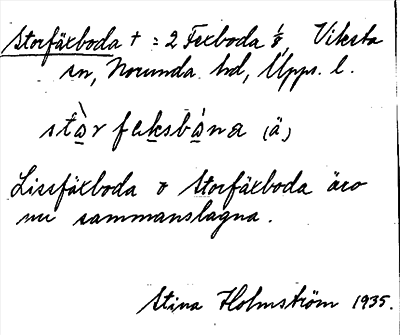 Storfäxboda + = 2 Fexboda 1/8, Viksta
sn, Norunda hd, Upps. l.
stàr feksbána (ä)
Lissfäxboda o Storfäxboda äro
nu sammanslagna.
Stina Holmström 1935.